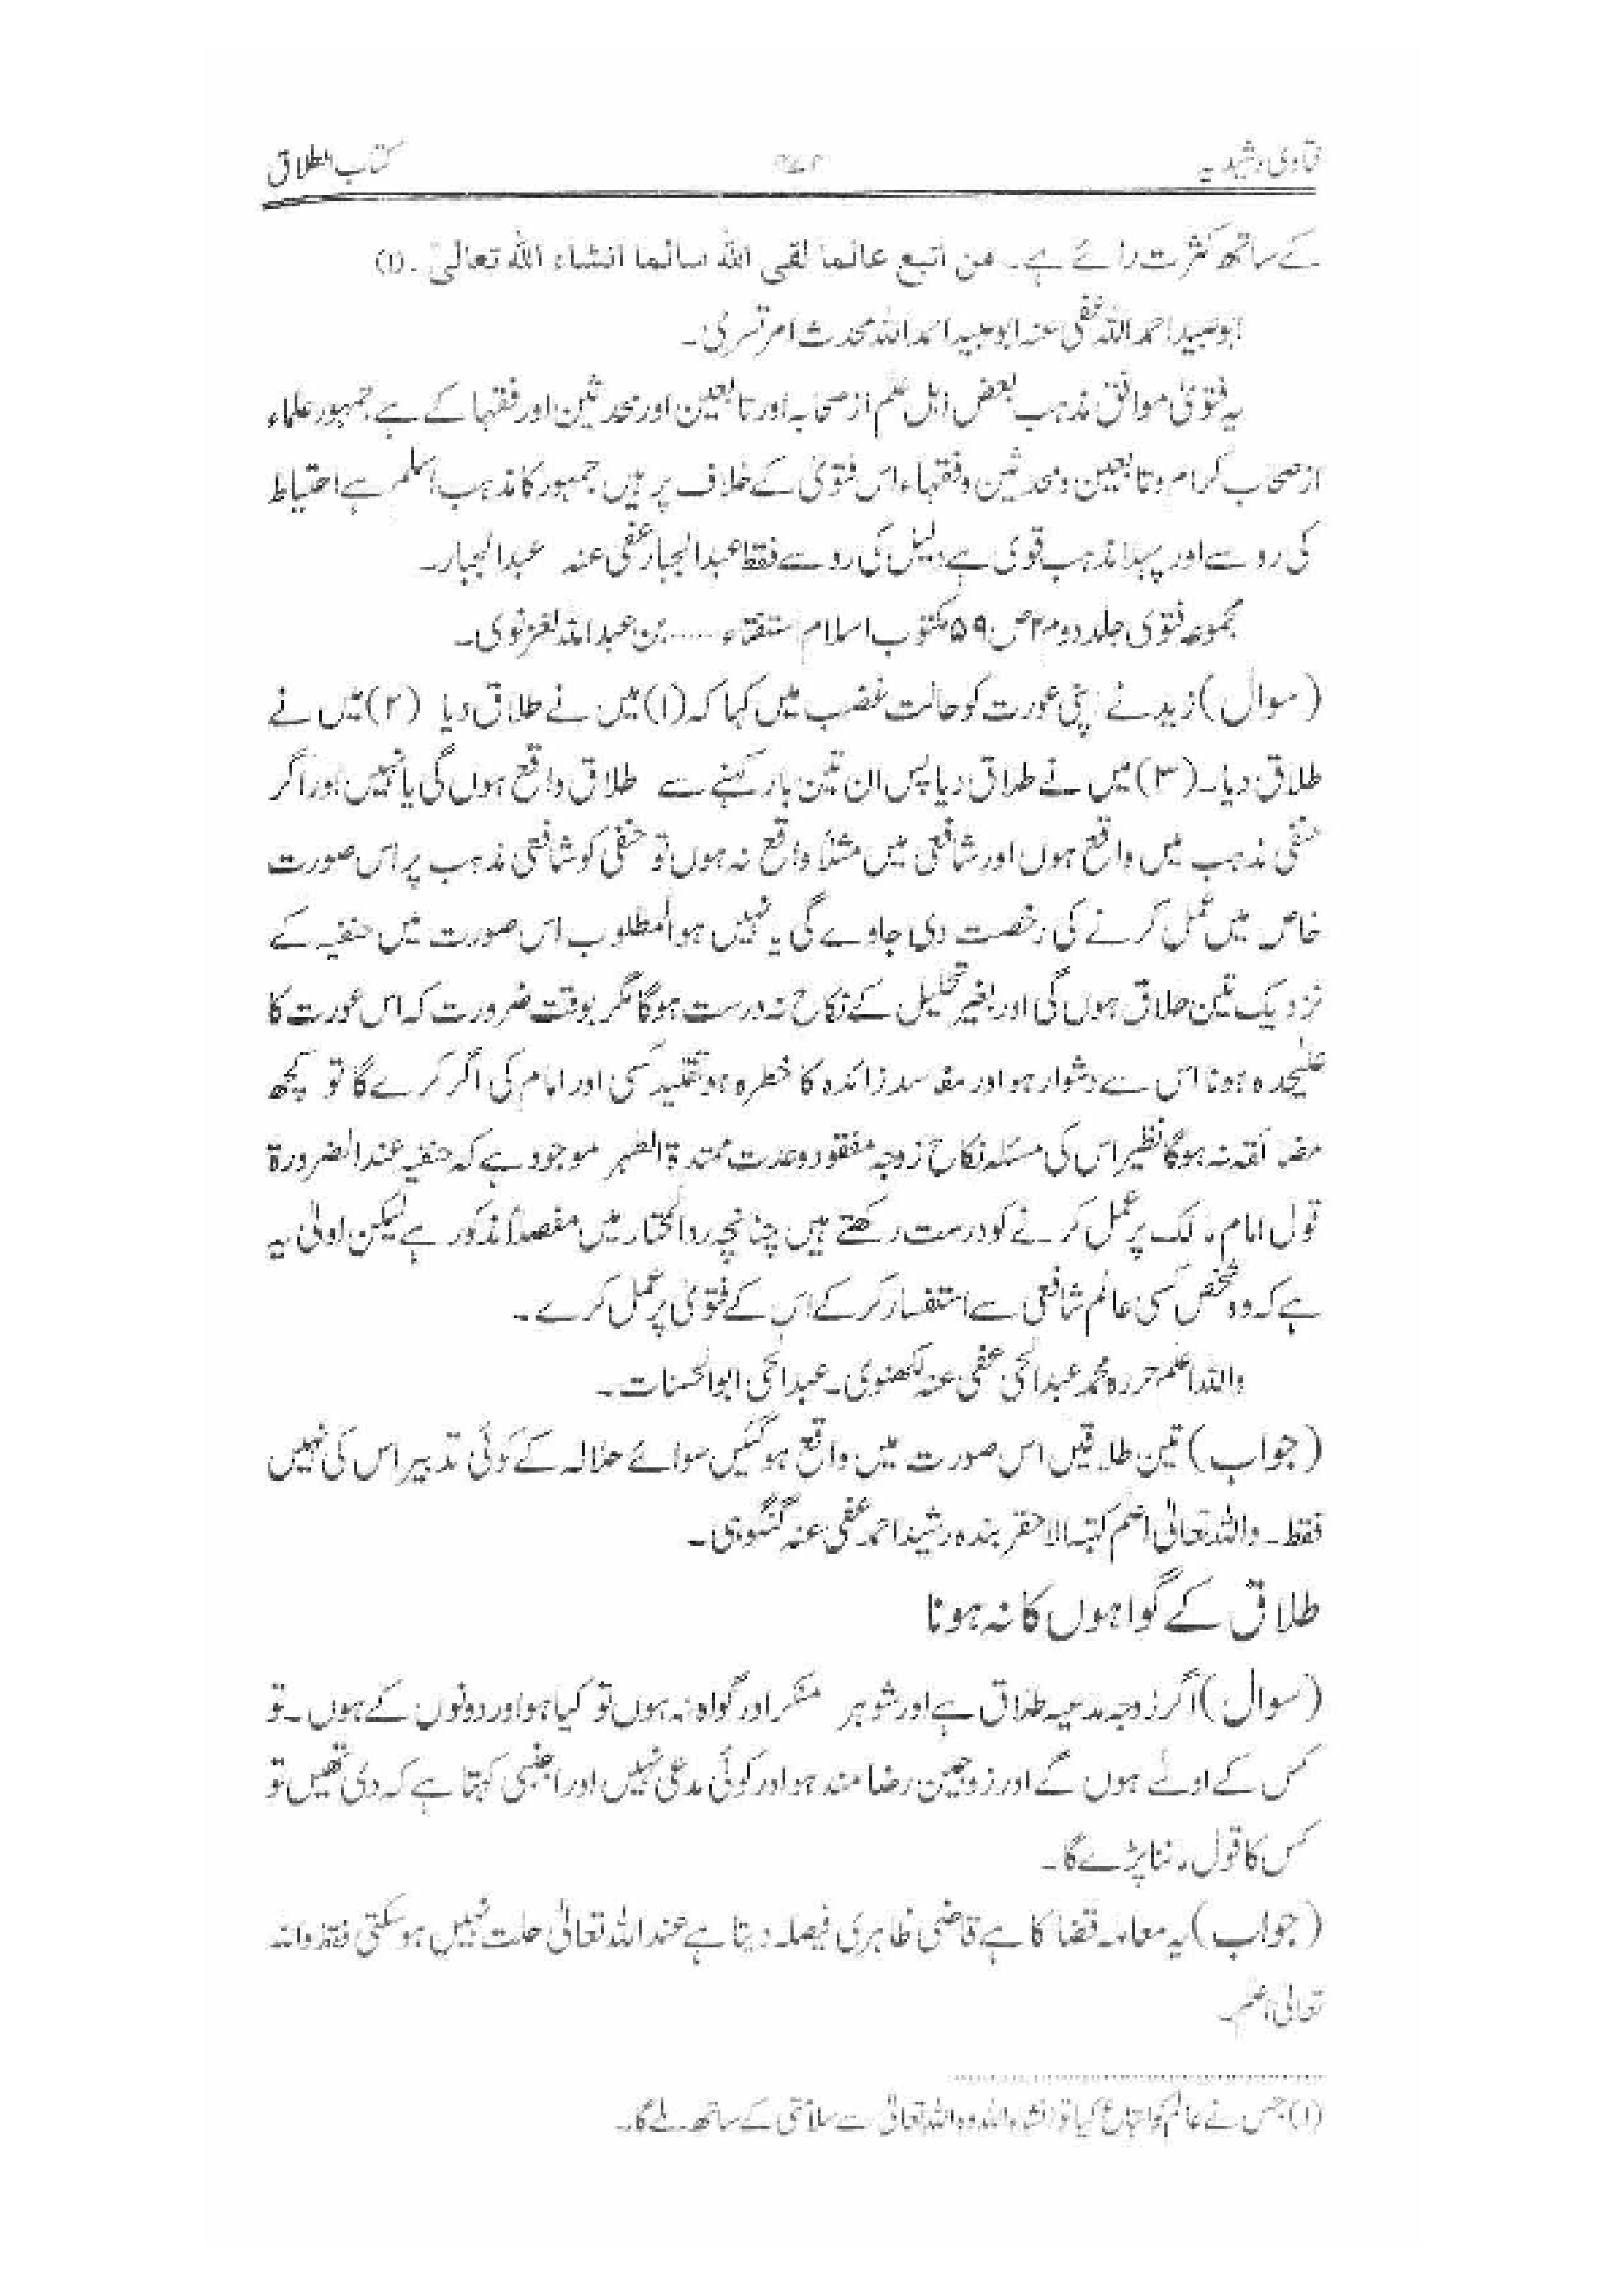 فتاوی رشیدیہ کتاب الطلاق
کے ساتھ کثرت رائے ہے۔ من اتبع عالما لقی الله سالما انشاء الله تعالیٰ۔ (۱)
ابو عبید احمد اللہ عفی عنہ ابو عبید احمد اللہ محدث امرتسری۔
یہ فتویٰ موافق مذہب بعض اہل علم از صحابہ اور تابعین اور محدثین اور فقہا کے ہے جمہور علماء
از صحاب کرام و تابعین و محدثین و فقہاء اس فتویٰ کے خلاف پر ہیں جمہور کا مذہب اسلم ہے احتیاط
کی رو سے اور پہلا مذہب قوی ہے دلیل کی رو سے فقط عبدالجبار عفی عنہ عبدالجبار۔
مجموعہ فتویٰ جلد دوم ۲ ص ۵۹ مکتوب اسلام استفتاء ..... بن عبداللہ الغزنوی۔
(سوال) زید نے اپنی عورت کو حالت غضب میں کہا کہ (۱) میں نے طلاق دیا (۲) میں نے
طلاق دیا۔ (۳) میں نے طلاق دیا پس ان تین بار کہنے سے طلاق واقع ہوں گی یا نہیں اور اگر
حنفی مذہب میں واقع ہوں اور شافعی میں مثلاً واقع نہ ہوں تو حنفی کو شافعی مذہب پر اس صورت
خاص میں عمل کرنے کی رخصت دی جاوے گی یا نہیں ہو المطلوب اس صورت میں حنفیہ کے
نزدیک تین طلاق ہوں گی اور بغیر تحلیل کے نکاح نہ درست ہوگا مگر بوقت ضرورت کہ اس عورت کا
علیٰحدہ ہونا اس سے دشوار ہو اور مفاسد زائدہ کا خطرہ ہو تقلید کسی اور امام کی اگر کرے گا تو کچھ
مضائقہ نہ ہوگا نظیر اس کی مسئلہ نکاح زوجہ مفقود و عدت ممتدۃ الطہر موجود ہے کہ حنفیہ عند الضرورۃ
قول امام مالک پر عمل کرنے کو درست رکھتے ہیں چنانچہ ردالمختار میں مفصلاً مذکور ہے لیکن اولیٰ یہ
ہے کہ وہ شخص کسی عالم شافعی سے استفسار کر کے اس کے فتویٰ پر عمل کرے۔
واللہ اعلم حررہ محمد عبدالحی عفی عنہ لکھنوی۔ عبدالحی ابوالحسنات۔
(جواب) تین طلاقیں اس صورت میں واقع ہو گئیں سوائے حلالہ کے کوئی تدبیر اس کی نہیں
فقط۔ واللہ تعالیٰ اعلم کتبہ الاحقر بندہ رشید احمد عفی عنہ گنگوہی۔
طلاق کے گواہوں کا نہ ہونا
(سوال) اگر زوجہ مدعیہ طلاق ہے اور شوہر منکر اور گواہ نہ ہوں تو کیا ہو اور دونوں کے ہوں۔ تو
کس کے اولے ہوں گے اور زوجین رضا مند ہو اور کوئی مدعی نہیں اور اجنبی کہتا ہے کہ دی تھیں تو
کس کا قول ماننا پڑے گا۔
(جواب) یہ معاملہ قضا کا ہے قاضی ظاہری فیصلہ دیتا ہے عند اللہ تعالیٰ حلت نہیں ہو سکتی فقط واللہ
تعالیٰ اعلم۔
(۱) جس نے عالم کا اتباع کیا تو انشاء اللہ وہ اللہ تعالیٰ سے سلامتی کے ساتھ ملے گا۔